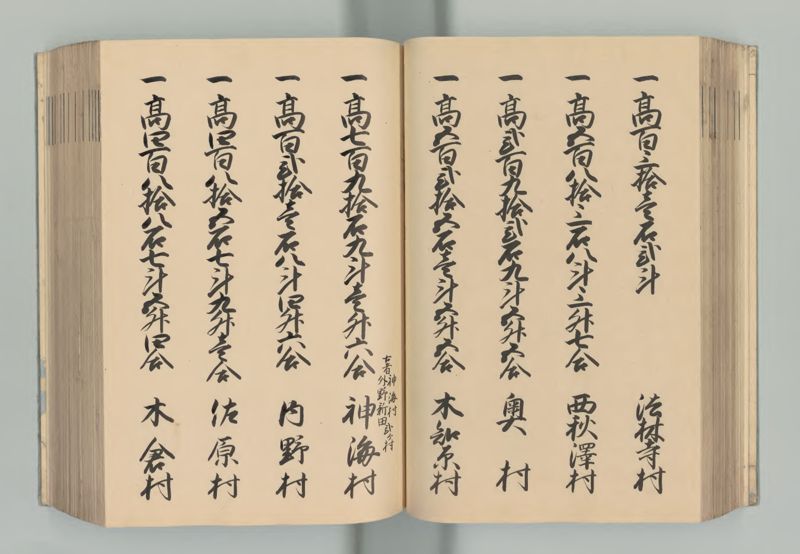 一 高百三拾壱石弐斗 法林寺村
一 高五百八拾三石八斗三升七合 西秋澤村
一 高弐百九拾弐石九斗五升五合 奥村
一 高五百弐拾五石壱斗五升五合 木知原村
古者神海村
外野新田弐ケ村
一 高七百九拾石九斗壱升六合 神海村
一 高百弐拾壱石八斗四升六合 内野村
一 高四百八拾五石七斗九升壱合 佐原村
一 高四百八拾八石七斗五升四合 木倉村